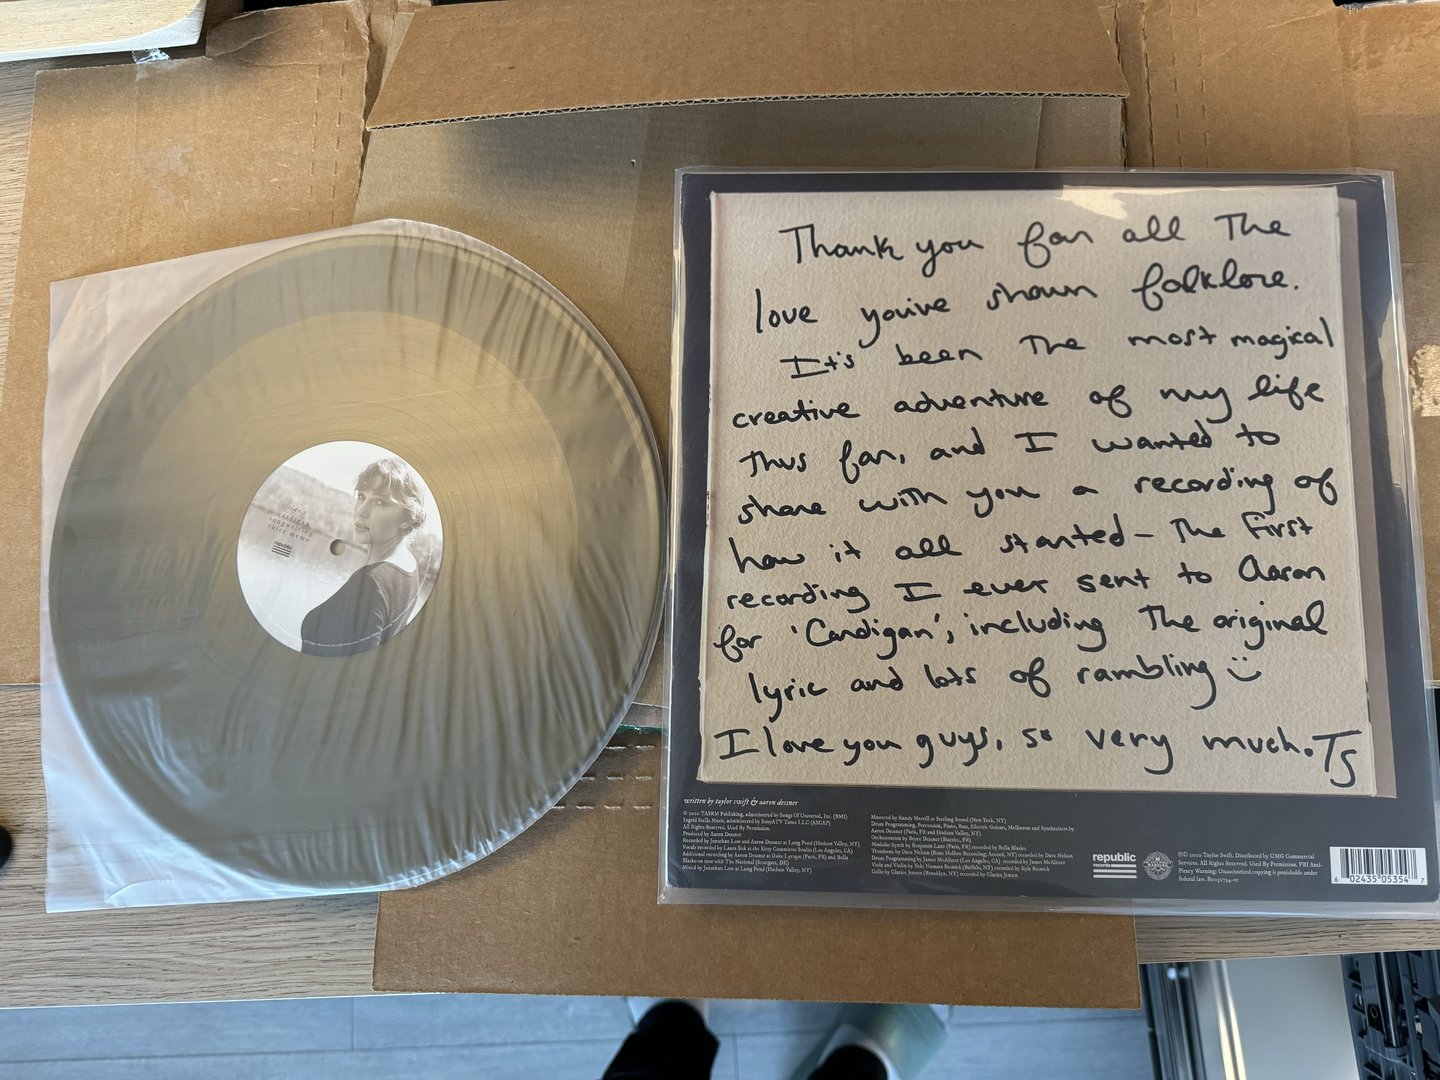 side A
cardigan
songwriting
voice memo
republic
Thank you for all The
love you've shown folklore.
It's been The most magical
creative adventure of my life
thus far, and I wanted to
share with you a recording of
how it all started - The first
recording I ever sent to Aaron
for 'Cardigan', including The original
lyric and lots of rambling
I love you guys, so very much. TS
written by taylor swift & aaron dessner
© 2020 TASRM Publishing, administered by Songs Of Universal, Inc. (BMI)
Ingrid Stella Music, administered by Sony/ATV Tunes LLC (ASCAP)
All Rights Reserved. Used By Permission.
Produced by Aaron Dessner
Recorded by Jonathan Low and Aaron Dessner at Long Pond (Hudson Valley, NY)
Vocals recorded by Laura Sisk at the Kitty Committee Studio (Los Angeles, CA)
Additional recording by Aaron Dessner at Gaite Lyrique (Paris, FR) and Bella
Blasko on tour with The National (Stuttgart, DE)
Mixed by Jonathan Low at Long Pond (Hudson Valley, NY)
Mastered by Randy Merrill at Sterling Sound (New York, NY)
Drum Programming, Percussion, Piano, Bass, Electric Guitars, Mellotron and Synthesizers by
Aaron Dessner (Paris, FR and Hudson Valley, NY)
Orchestration by Bryce Dessner (Biarritz, FR)
Modular Synth by Benjamin Lanz (Paris, FR) recorded by Bella Blasko
Trombone by Dave Nelson (Bone Hollow Recording, Accord, NY) recorded by Dave Nelson
Drum Programming by James McAlister (Los Angeles, CA) recorded by James McAlister
Viola and Violin by Yuki Numata Resnick (Buffalo, NY) recorded by Kyle Resnick
Cello by Clarice Jensen (Brooklyn, NY) recorded by Clarice Jensen
republic
records
℗© 2020 Taylor Swift. Distributed by UMG Commercial
Services. All Rights Reserved. Used By Permission. FBI Anti-
Piracy Warning: Unauthorized copying is punishable under
federal law. B0032734-21
6 02435 05354 7